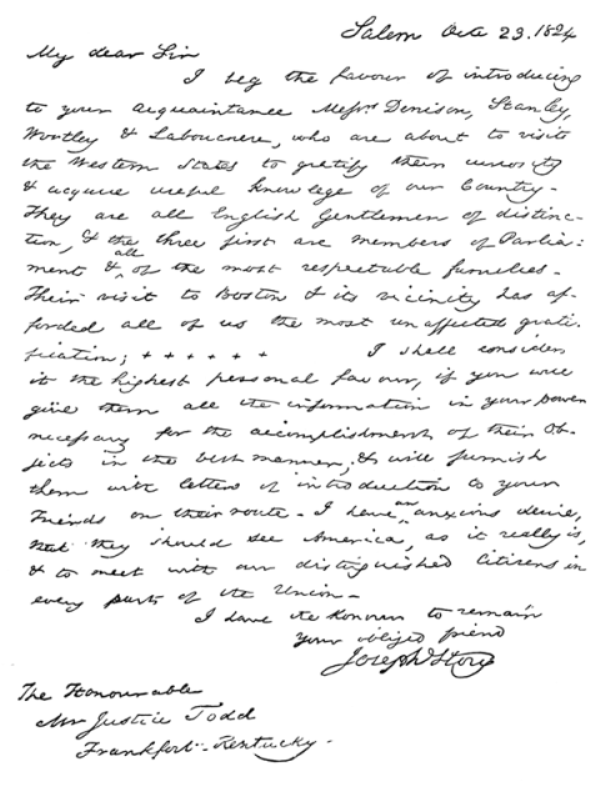 Salem Octr 23. 1824
My dear Sir
I beg the favour of introducing
to your acquaintance Messrs. Denison, Stanley,
Wortley & Labouchere, who are about to visit
the Western States to gratify their curiosity
& acquire useful knowlege of our Country.
They are all English Gentlemen of distinc-
tion, & the three first are members of Parlia-
ment & all of the most respectable families.
Their visit to Boston & its vicinity has af-
forded all of us the most unaffected grati-
fication; + + + + + + I shall consider
it the highest personal favour, if you will
give them all the information in your power
necessary for the accomplishment of their Ob-
jects in the best manner, & will furnish
them with letters of introduction to your
Friends on their route. I have an anxious desire,
that they should see America, as it really is,
& to meet with our distinguished Citizens in
every part of the Union.
I have the honour to remain
your obliged friend
Joseph Story
The Honourable
Mr Justice Todd
Frankfort - Kentucky.